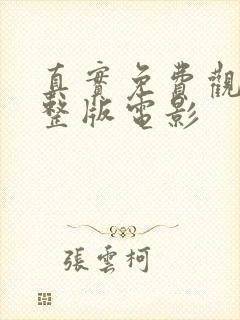 真實免費觀
整版電影
張雲柯